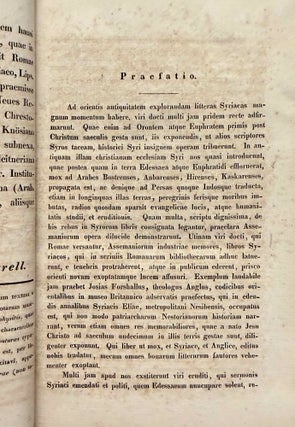 hausi
, quae in
it Romae
iaco, Lips.
praemisso
Neues Re-
Chresto-
Knösiana
subnexa,
eitneriana
r. Institu-
na (Arab.
, aliisque
rell.
Praefatio.
Ad orientis antiquitatem explorandam litteras Syriacas ma-
gnum momentum habere, viri docti multi jam pridem recte adfir-
marunt. Quae enim ad Orontem atque Euphratem primis post
Christum saeculis gesta sunt, iis exponendis, ut alios scriptores
Syros taceam, historici Syri insignem operam tribuerunt. In an-
tiquam illam christianam ecclesiam Syri nos quasi introducunt,
quae postea quam in terra Edessae atque Euphratis efflorescere coepit,
mox ad Arabes Bostrenses, Anbarenses, Hirenses, Kaskarenses,
propagata est, ac denique ad Persas quoque Indosque traducta,
etiam in longinquas illas terras, peregrinis ferisque moribus im-
butas, radios quosdam sparsit evangelicae lucis, atque humani-
tatis studii, et eruditionis. Quam multa, scriptu dignissima, de
his rebus in Syrorum libris consignata legantur, praeclara Assema-
niorum opera dilucide demonstrarunt. Utinam viri docti, qui
Romae versantur, Assemaniorum industriae memores, libros Sy-
riacos, qui in scriniis Romanarum bibliothecarum adhuc latent,
e tenebris protraherent, atque in publicum ederent, prisco
orienti novum exoptatamque lucem affunderent. Exemplum laudabile
jam praebet Josias Forshallus, theologus Anglus, codicibus ori-
entalibus in museo Britannico adservatis praefectus, qui in eden-
dis annalibus Syriacis Eliae, metropolitani Nesibensis, occupatus
est, qui non modo patriarcharum Nestorianorum historiam nar-
rant, verum etiam omnes res memorabiliores, quae a nato Jesu
Christo ad saeculum undecimum in illis terris gestae sunt, dili-
genter exponunt. Qui liber ut mox, et Syriace, et Anglice, editus
nobis tradatur, mecum omnes bonarum litterarum fautores vehe-
menter exoptant.
Multi jam apud nos exstiterunt viri eruditi, qui sermonis
Syriaci emendati et politi, quem Edessenum nuncupare solent, re-